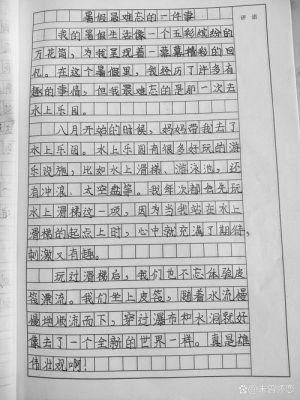 评语
暑假最难忘的一件事
我的暑假生活像一个五彩缤纷的
万花筒，为我呈现着一幕幕精彩的回
忆。在这个暑假里，我经历了许多有
趣的事情，但我最难忘的是那一次去
水上乐园。
八月开始的时候，妈妈带我去了
水上乐园。水上乐园有很多好玩的游
乐设施，比如水上滑梯、游泳池，还
有冲浪、太空盘等。我每次都会先玩
水上滑梯这一项，因为当我站在水上
滑梯的起点上时，心中就充满了期待，
刺激又有趣。
玩过滑梯后，我们也不忘体验皮
筏漂流。我们坐上皮筏，随着水流慢
慢地顺流而下，穿过瀑布和水洞就好
像去了一个全新的世界一样。真是雄
伟壮观啊！